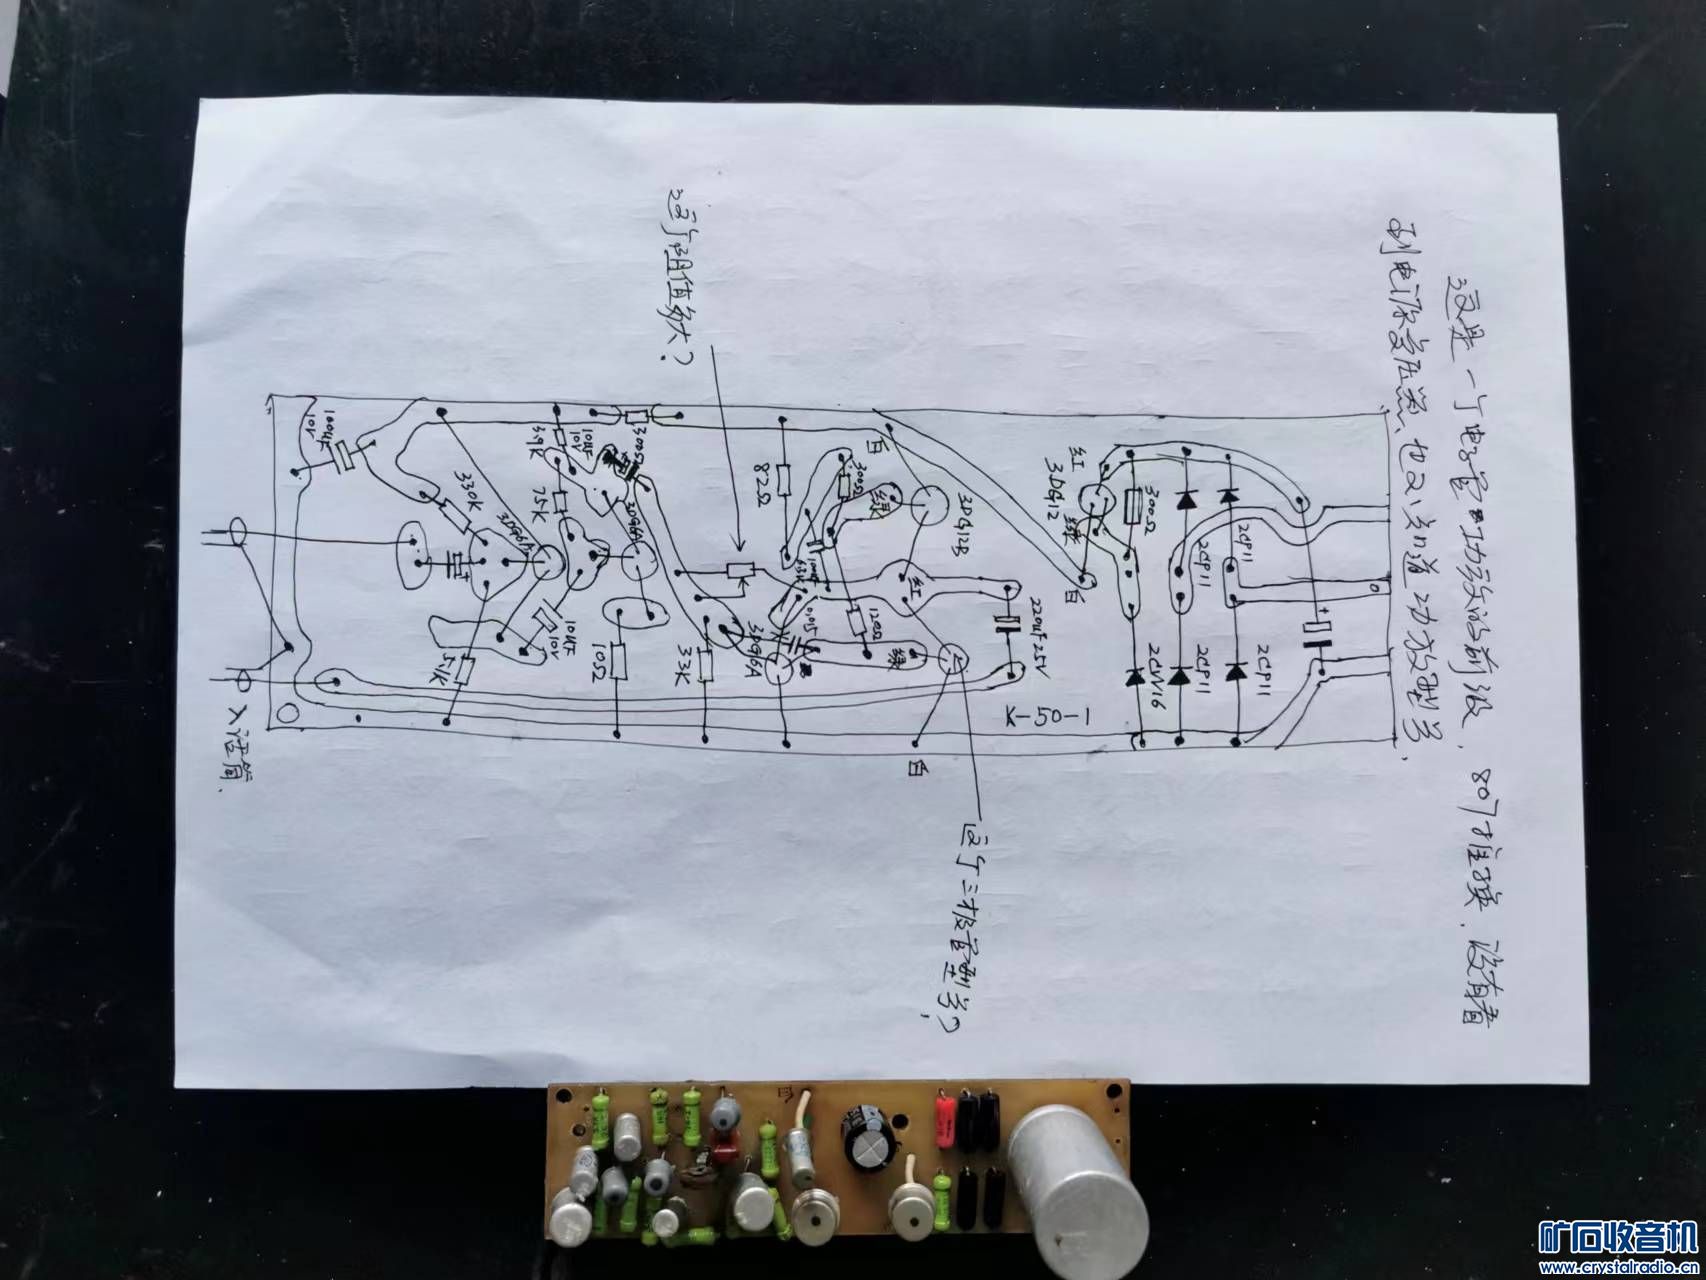 这是一个电子管功放的前级，807推挽，没有看
到电源变压器，也不知道功放型号
这个阻值多大？
这个三极管型号？
入话筒
100μF
10V
330K
3DG6A
5.1K
39K
10μF
10V
75K
300Ω
3DG6A
10μF
10V
10Ω
33K
3DG6A
82Ω
300Ω
绿
100μF
6.8K
0.015
120Ω
绿
红
白
3DG12B
白
220μF 25V
K-50-1
红
3DG12
绿
白
300Ω
2CP11
2CP11
2CW16
2CP11
2CP11
+
矿石收音机
www.crystalradio.cn